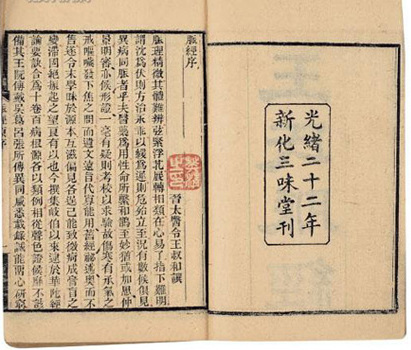 光緒二十二年
新化三味堂刊
脈經序
晉太醫令王叔和譔
脈理精微其體難辨弦緊浮芤展轉相類在心易了指下難明
謂沈爲伏則方治永乖以緩爲遲則危殆立至況有數候俱見
異病同脈者乎夫醫藥爲用性命所繫和鵲至妙猶或加思仲
景明審亦候形證一毫有疑則考校以求驗故傷寒有承氣之
戒嘔噦發下焦之問而遺文遠旨代寡能用舊經祕述奧而不
售遂令末學昧於源本互滋偏見各逞己能致微痾成膏肓之
變滯固絕振起之望良有以也今撰集岐伯以來逮於華佗經
論要訣合爲十卷百病根源各以類例相從聲色證候靡不該
備其王阮傅戴吳葛呂張所傳異同咸悉載錄誠能留心研窮